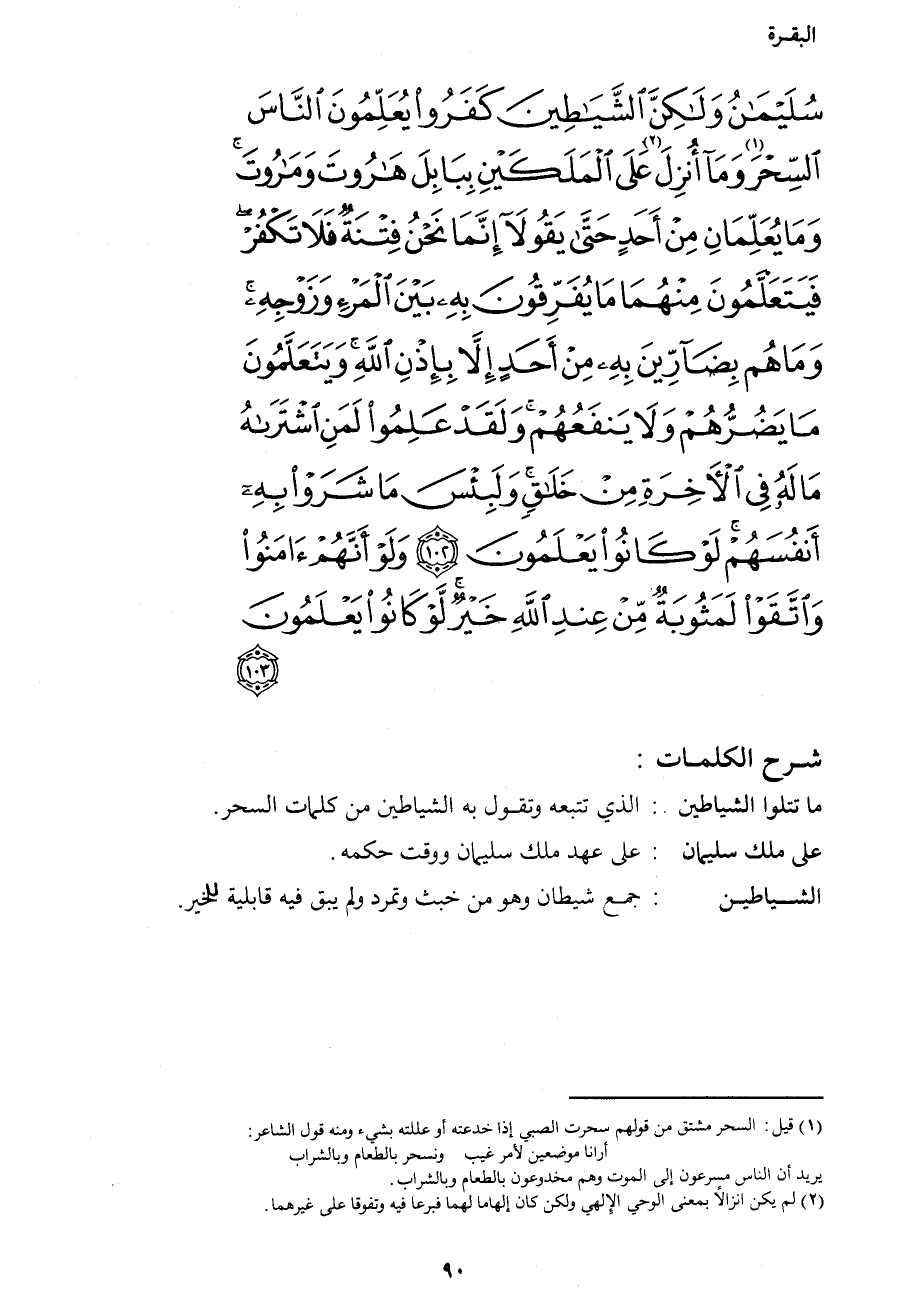 البقـرة
سُلَيْمَـٰنُ وَلَـٰكِنَّ ٱلشَّيَـٰطِينَ كَفَرُوا۟ يُعَلِّمُونَ ٱلنَّاسَ
ٱلسِّحْرَ(١) وَمَآ أُنزِلَ(٢) عَلَى ٱلْمَلَكَيْنِ بِبَابِلَ هَـٰرُوتَ وَمَـٰرُوتَ ۚ
وَمَا يُعَلِّمَانِ مِنْ أَحَدٍ حَتَّىٰ يَقُولَآ إِنَّمَا نَحْنُ فِتْنَةٌ فَلَا تَكْفُرْ ۖ
فَيَتَعَلَّمُونَ مِنْهُمَا مَا يُفَرِّقُونَ بِهِۦ بَيْنَ ٱلْمَرْءِ وَزَوْجِهِۦ ۚ
وَمَا هُم بِضَآرِّينَ بِهِۦ مِنْ أَحَدٍ إِلَّا بِإِذْنِ ٱللَّهِ ۚ وَيَتَعَلَّمُونَ
مَا يَضُرُّهُمْ وَلَا يَنفَعُهُمْ ۚ وَلَقَدْ عَلِمُوا۟ لَمَنِ ٱشْتَرَىٰهُ
مَا لَهُۥ فِى ٱلْـَٔاخِرَةِ مِنْ خَلَـٰقٍ ۚ وَلَبِئْسَ مَا شَرَوْا۟ بِهِۦٓ
أَنفُسَهُمْ ۚ لَوْ كَانُوا۟ يَعْلَمُونَ ١٠٢ وَلَوْ أَنَّهُمْ ءَامَنُوا۟
وَٱتَّقَوْا۟ لَمَثُوبَةٌ مِّنْ عِندِ ٱللَّهِ خَيْرٌ ۚ لَّوْ كَانُوا۟ يَعْلَمُونَ
١٠٣
شـرح الكلمـات :
ما تتلوا الشياطين : الذي تتبعه وتقـول به الشياطين من كلمات السحر.
على ملك سليمان : على عهد ملك سليمان ووقت حكمه.
الشـياطيـن : جمـع شيطان وهو من خبث وتمرد ولم يبق فيه قابلية للخير.
(١) قيل: السحر مشتق من قولهم سحرت الصبي إذا خدعته أو عللته بشيء ومنه قول الشاعر:
أرانا موضعين لأمر غيب ونسحر بالطعام وبالشراب
يريد أن الناس مسرعون إلى الموت وهم مخدوعون بالطعام وبالشراب.
(٢) لم يكن انزالاً بمعنى الوحي الإلهي ولكن كان إلهاما لهما فبرعا فيه وتفوقا على غيرهما.
٩٠